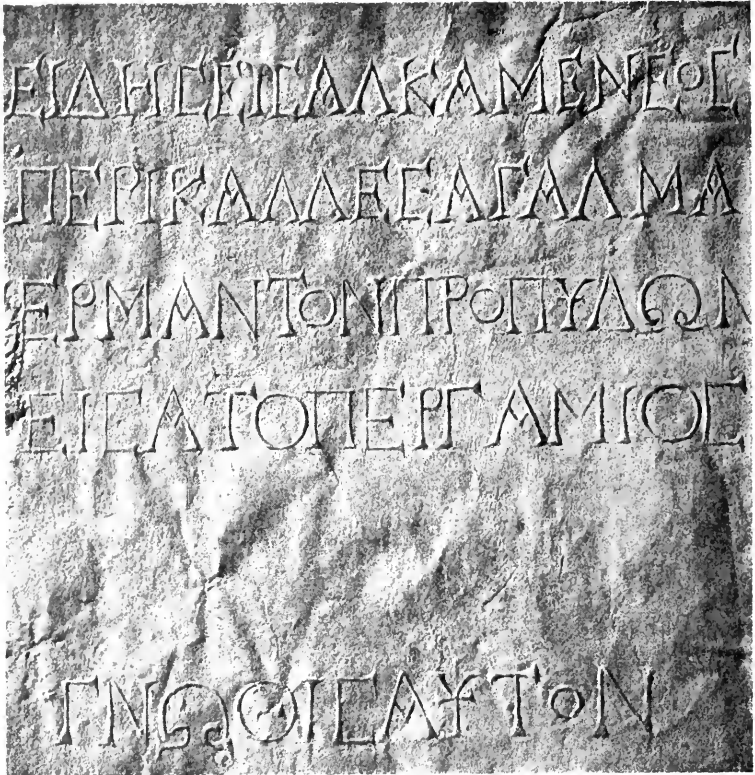 ΕΙΔΗΣΕΙΣΑΛΚΑΜΕΝΕΟΣ
ΠΕΡΙΚΑΛΛΕΣΑΓΑΛΜΑ
ΕΡΜΑΝΤΟΝΠΡΟΠΥΛΩΝ
ΕΙΣΑΤΟΠΕΡΓΑΜΙΟΣ
ΓΝΩΘΙΣΑΥΤΟΝ